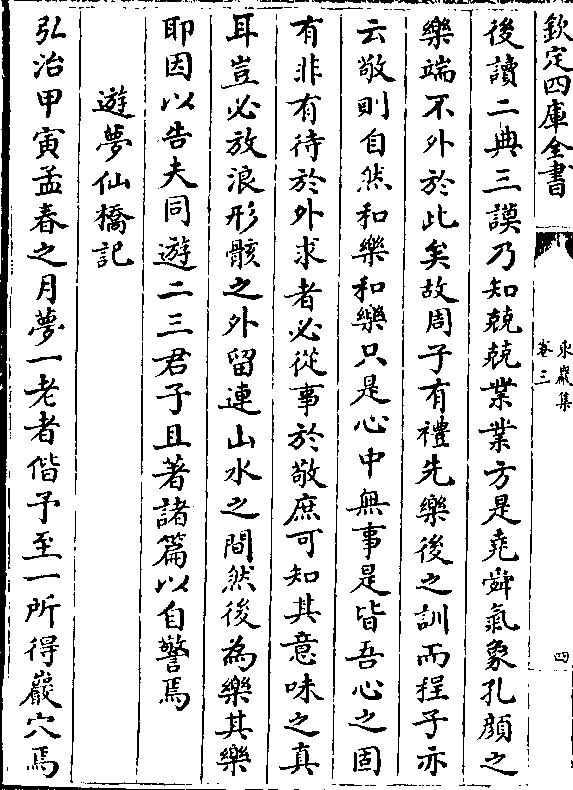 欽定四庫全書
東巖集
卷三
四
後讀二典三謨乃知兢兢業業方是堯舜氣象孔顔之
樂端不外於此矣故周子有禮先樂後之訓而程子亦
云敬則自然和樂和樂只是心中無事是皆吾心之固
有非有待於外求者必從事於敬庶可知其意味之真
耳豈必放浪形骸之外留連山水之間然後為樂其樂
耶因以告夫同遊二三君子且著諸篇以自警焉
遊夢仙橋記
弘治甲寅孟春之月夢一老者偕予至一所得巖穴焉